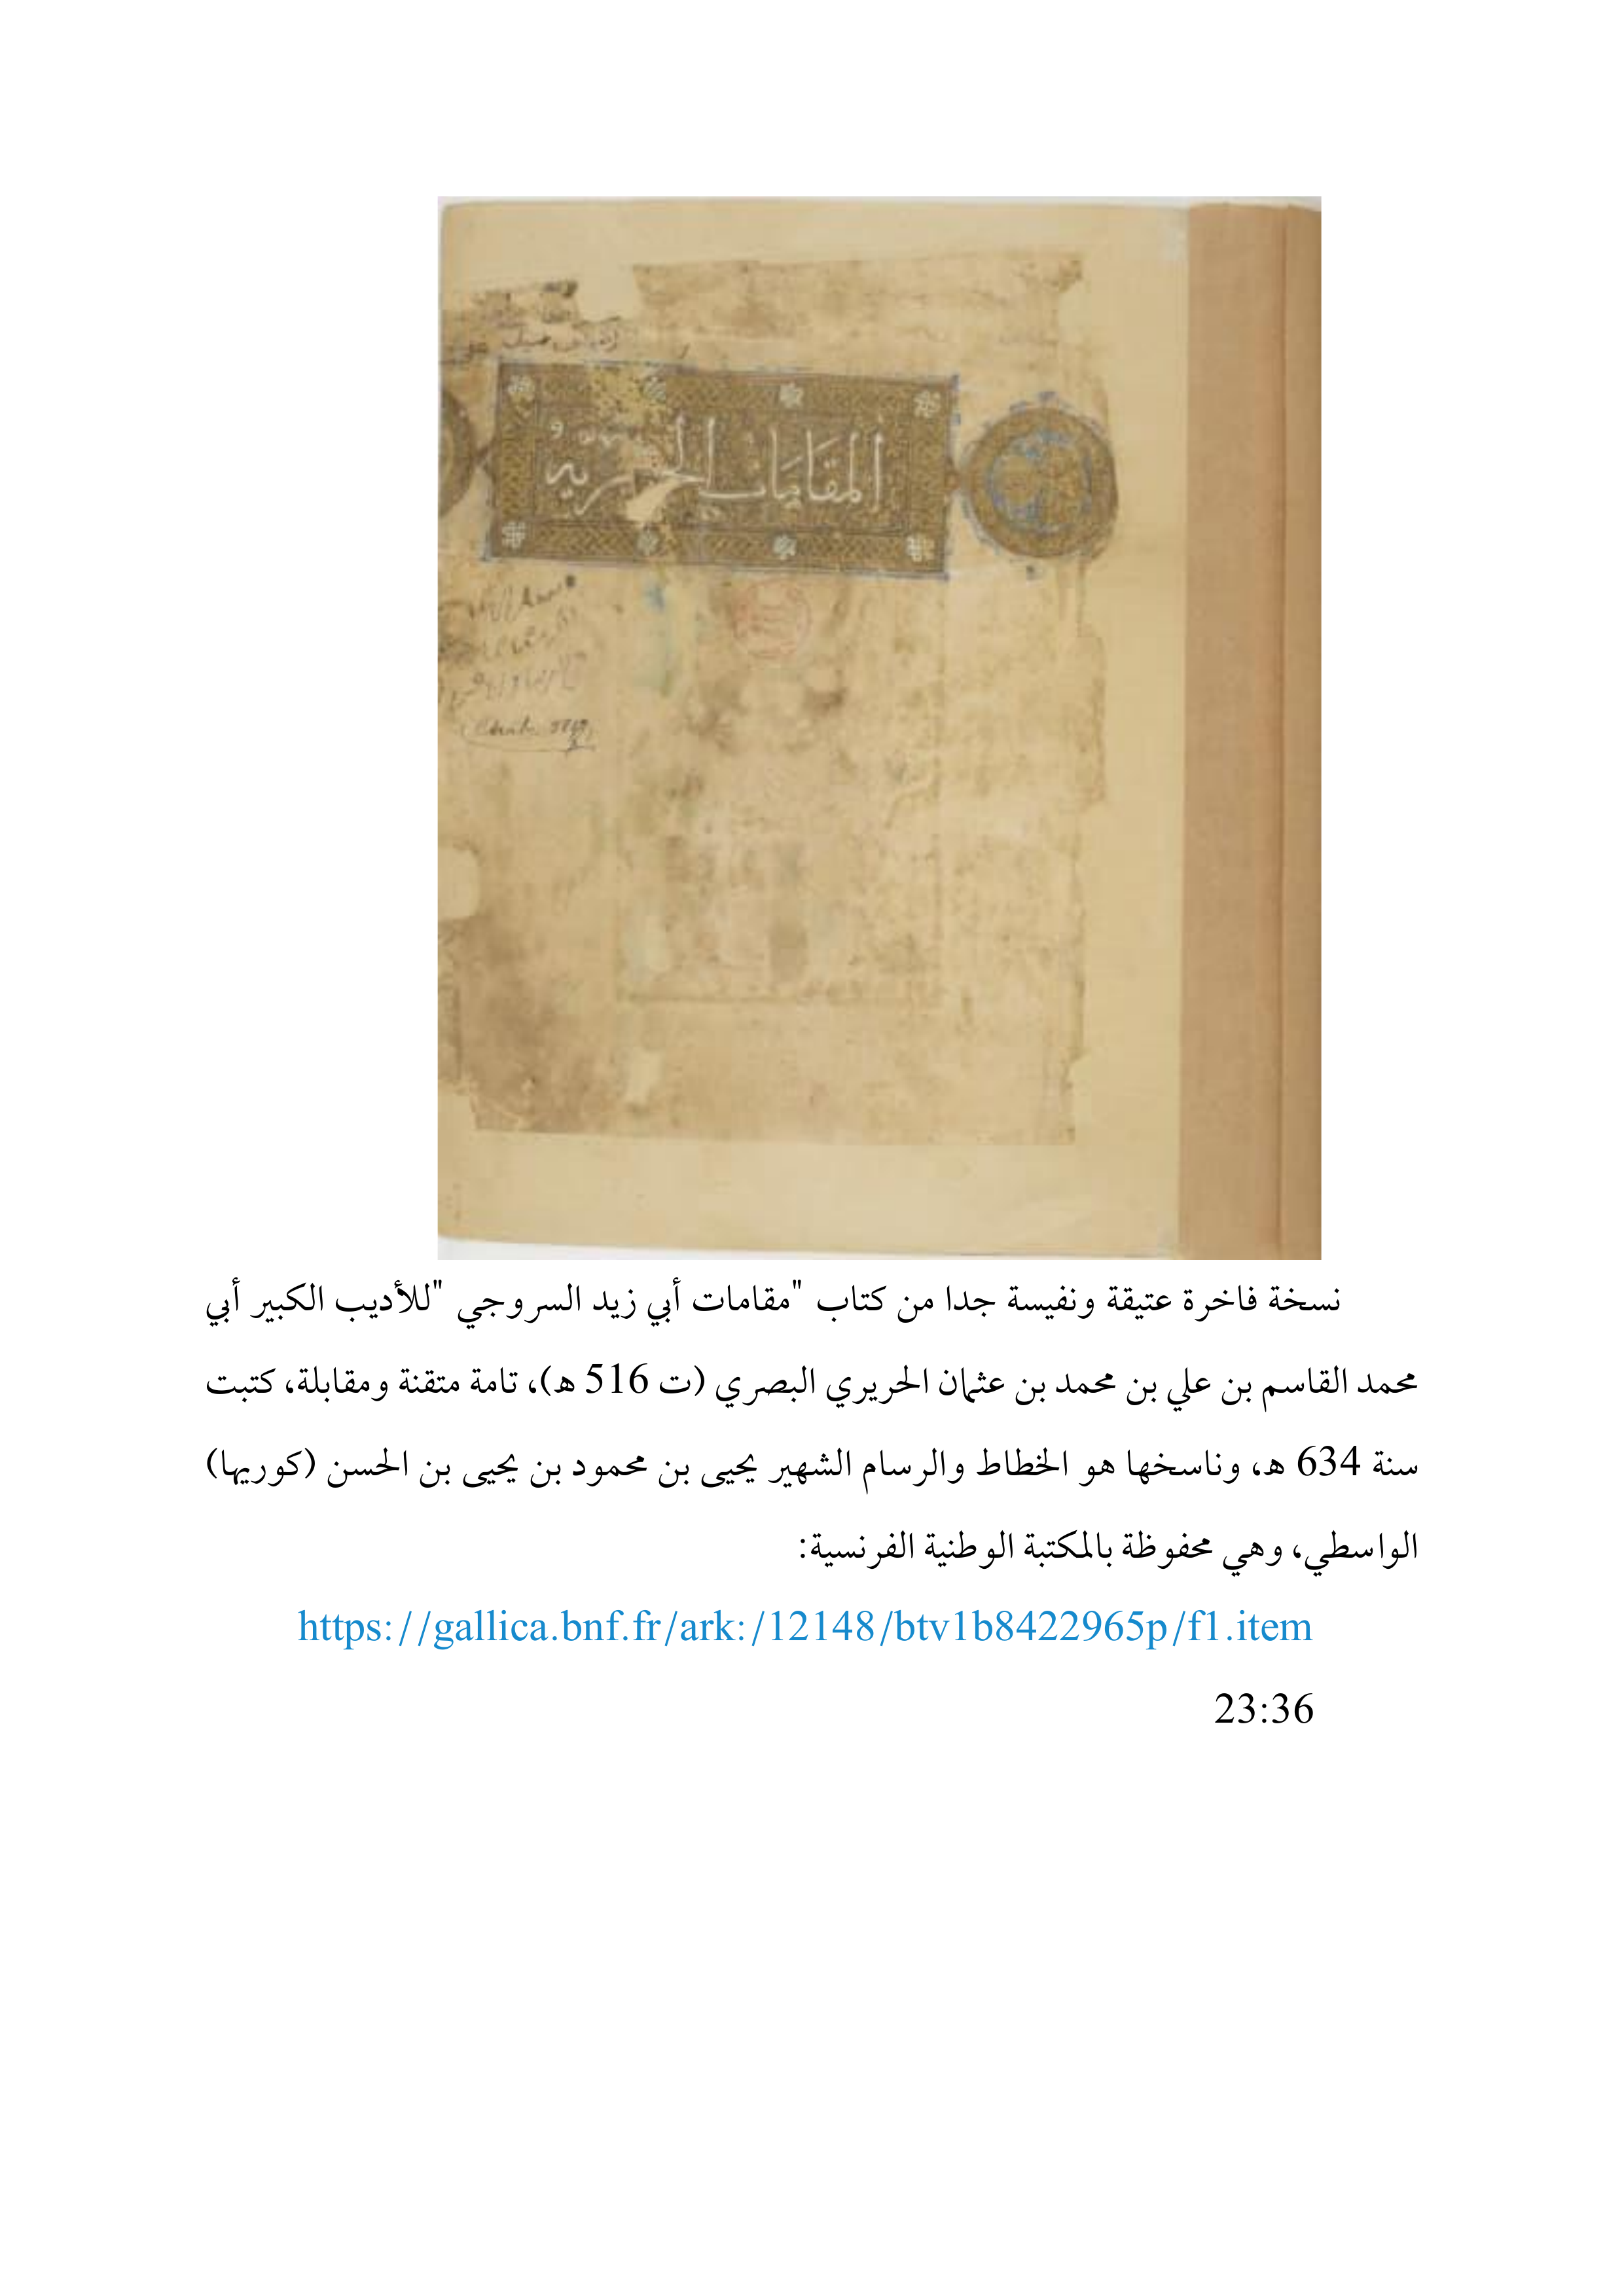 المقامات الحريرية
نسخة فاخرة عتيقة ونفيسة جدا من كتاب "مقامات أبي زيد السروجي "للأديب الكبير أبي
محمد القاسم بن علي بن محمد بن عثمان الحريري البصري (ت 516 هـ)، تامة متقنة ومقابلة، كتبت
سنة 634 هـ، وناسخها هو الخطاط والرسام الشهير يحيى بن محمود بن يحيى بن الحسن (كوريها)
الواسطي، وهي محفوظة بالمكتبة الوطنية الفرنسية:
https://gallica.bnf.fr/ark:/12148/btv1b8422965p/f1.item
23:36